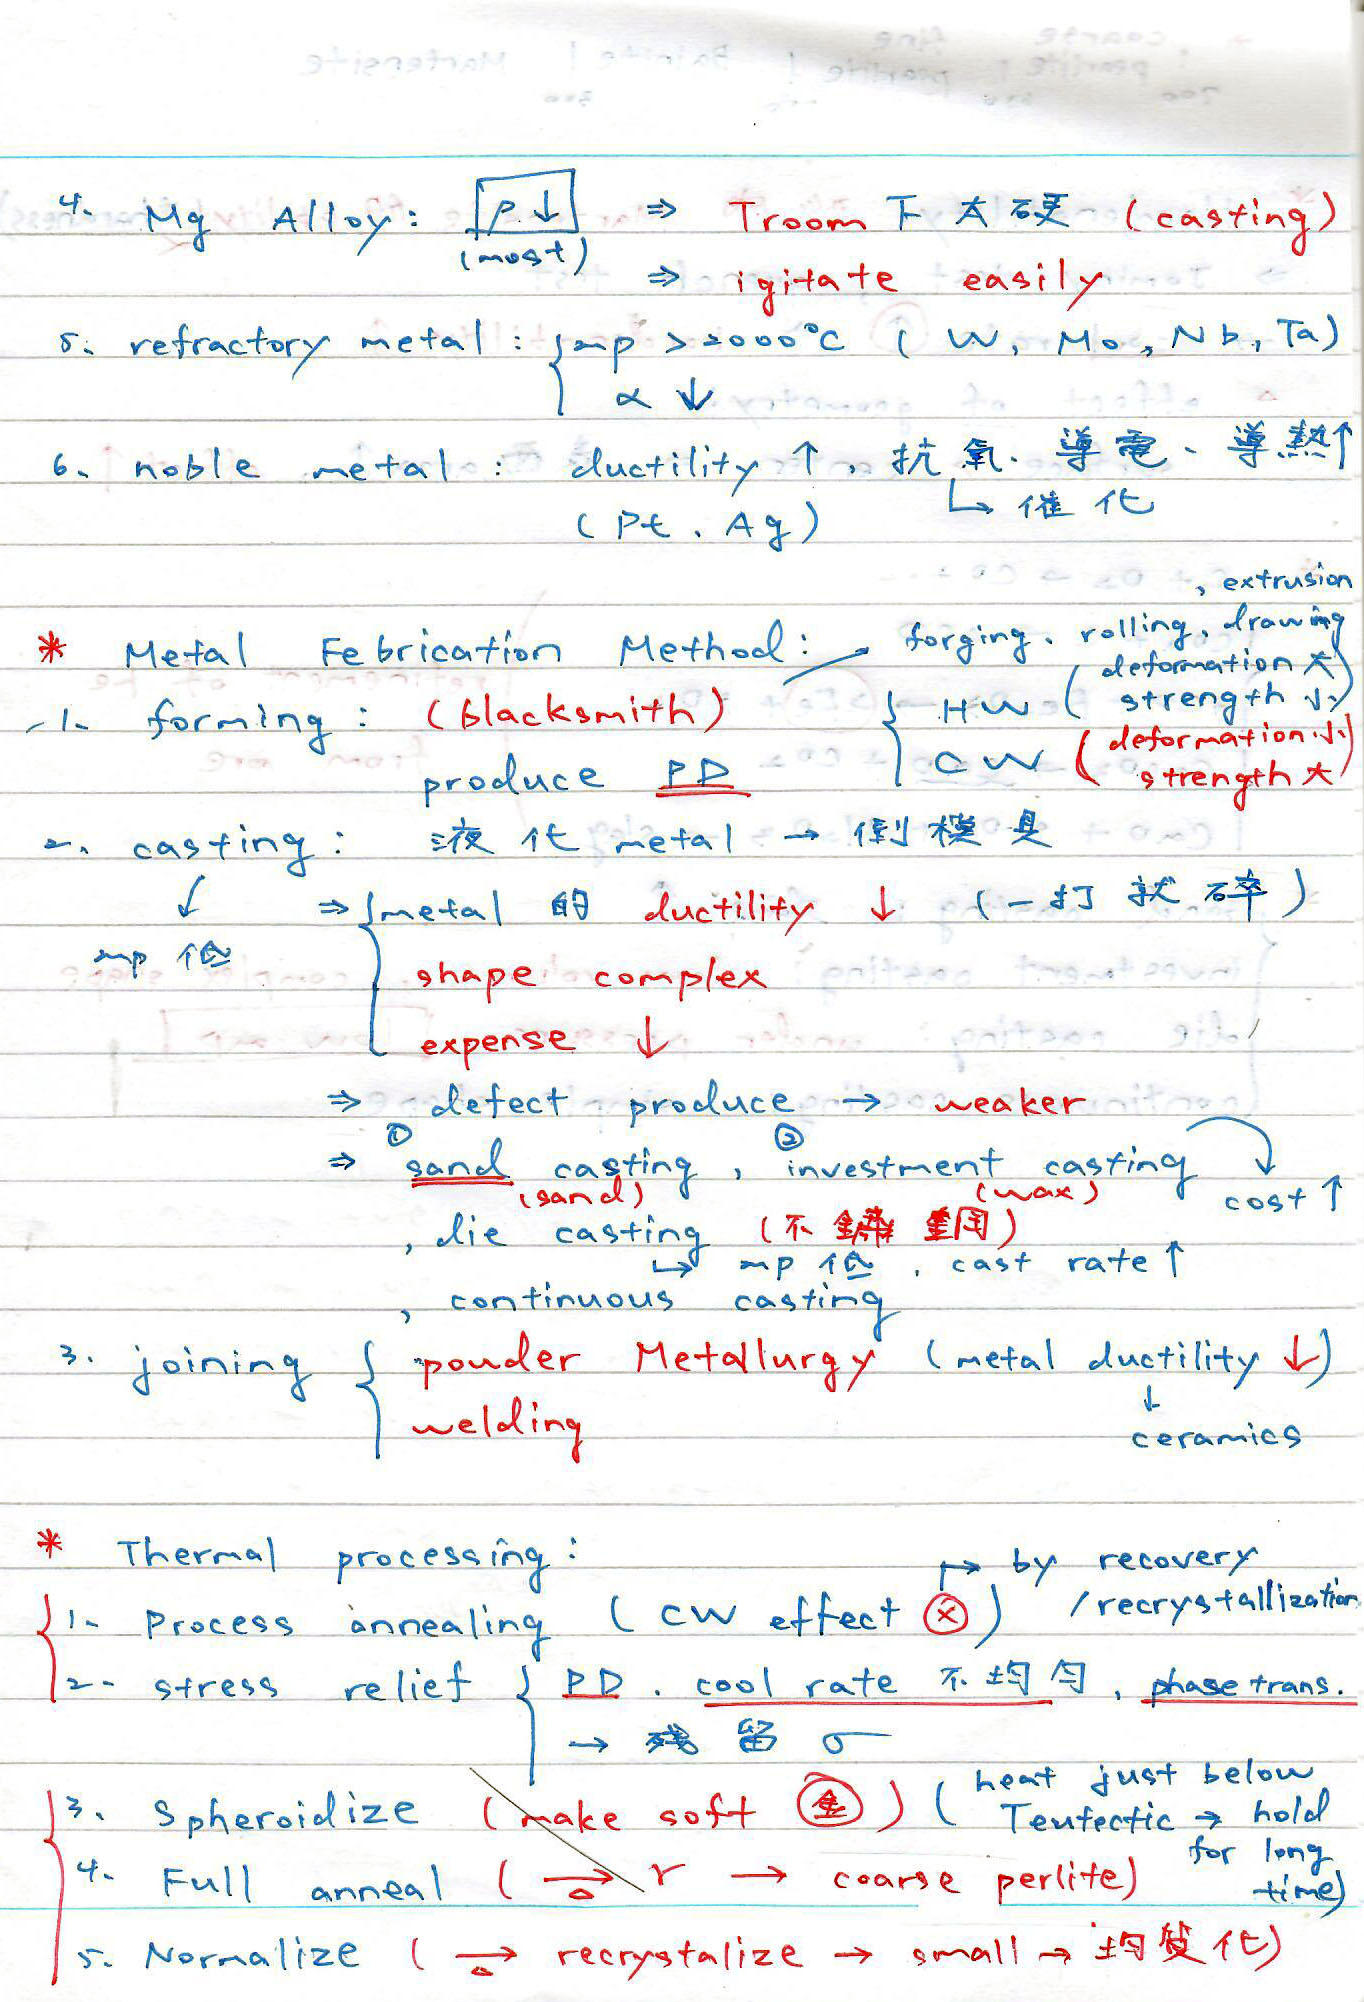 4. Mg Alloy: ρ↓ ⇒ Troom 下 太硬 (casting)
(most) ⇒ igitate easily
5. refractory metal: { mp > 2000°C ( W, Mo, Nb, Ta)
α ↓
6. noble metal: ductility ↑, 抗氧、導電、導熱↑
(Pt、Ag) ↳ 催化
, extrusion
* Metal Febrication Method: forging、rolling, drawing
1. forming: (blacksmith) { HW (deformation 大 strength 小)
produce PD CW (deformation 小 strength 大)
2. casting: 液化 metal → 倒模具
↓ ⇒ { metal 的 ductility ↓ (一打就碎)
mp 低
shape complex
expense ↓
⇒ defect produce → weaker
⇒ ① sand casting, ② investment casting
(sand) (wax) cost ↑
, die casting (不 重用)
↳ mp 低, cast rate ↑
, continuous casting
3. joining { powder Metallurgy (metal ductility ↓)
welding ↓
ceramics
* Thermal processing: → by recovery
1. Process annealing ( CW effect ⓧ ) /recrystallization
2. stress relief { PD. cool rate 不均勻, phase trans.
→ 殘留 σ
3. Spheroidize (make soft 金) (heat just below
Teutectic → hold
for long
time)
4. Full anneal ( →△ r → coarse perlite)
5. Normalize ( →△ recrystalize → small → 均質化)